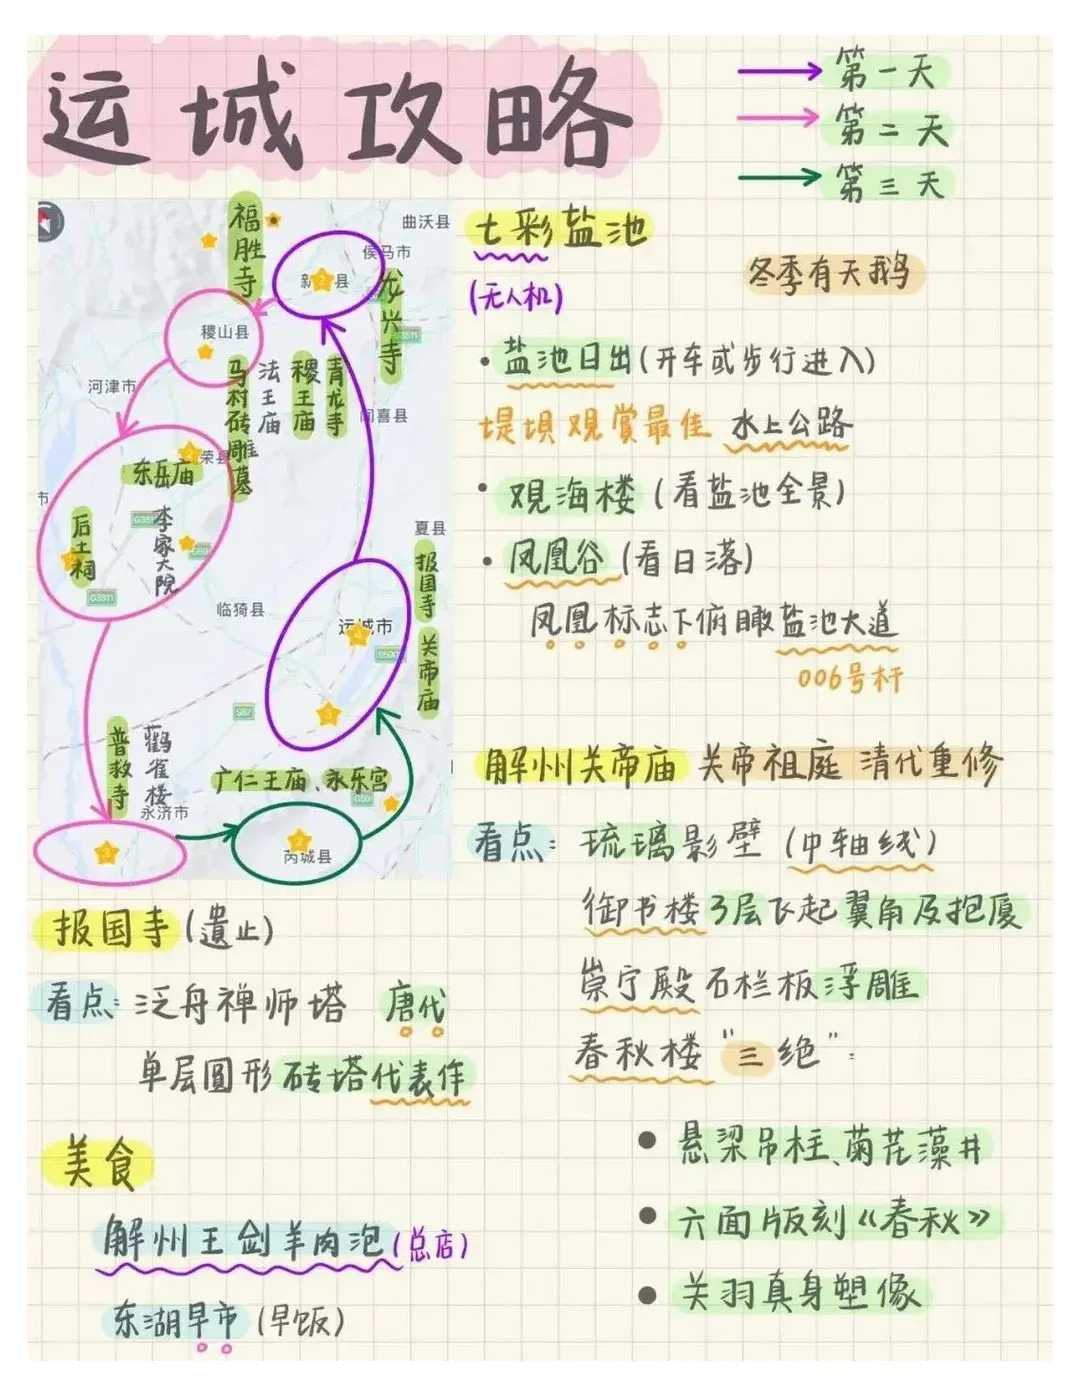 运城攻略
第一天
第二天
第三天
福胜寺
曲沃县
侯马市
新 县
龙兴寺
稷山县
河津市
马村砖雕墓
法王庙
稷王庙
青龙寺
闻喜县
荣
东岳庙
后土祠
李家大院
夏县
报国寺
关帝庙
临猗县
运城市
普救寺
鹳雀楼
永济市
广仁王庙、永乐宫
芮城县
七彩盐池
(无人机)
冬季有天鹅
·盐池日出(开车或步行进入)
堤坝观赏最佳 水上公路
·观海楼(看盐池全景)
·凤凰谷(看日落)
凤凰标志下俯瞰盐池大道
006号杆
解州关帝庙 关帝祖庭 清代重修
看点:琉璃影壁(中轴线)
御书楼3层飞起翼角及抱厦
崇宁殿石栏板浮雕
春秋楼"三绝":
●悬梁吊柱、菊花藻井
●六面版刻《春秋》
●关羽真身塑像
报国寺(遗止)
看点:泛舟禅师塔 唐代
单层圆形砖塔代表作
美食
解州王剑羊肉泡(总店)
东湖早市(早饭)